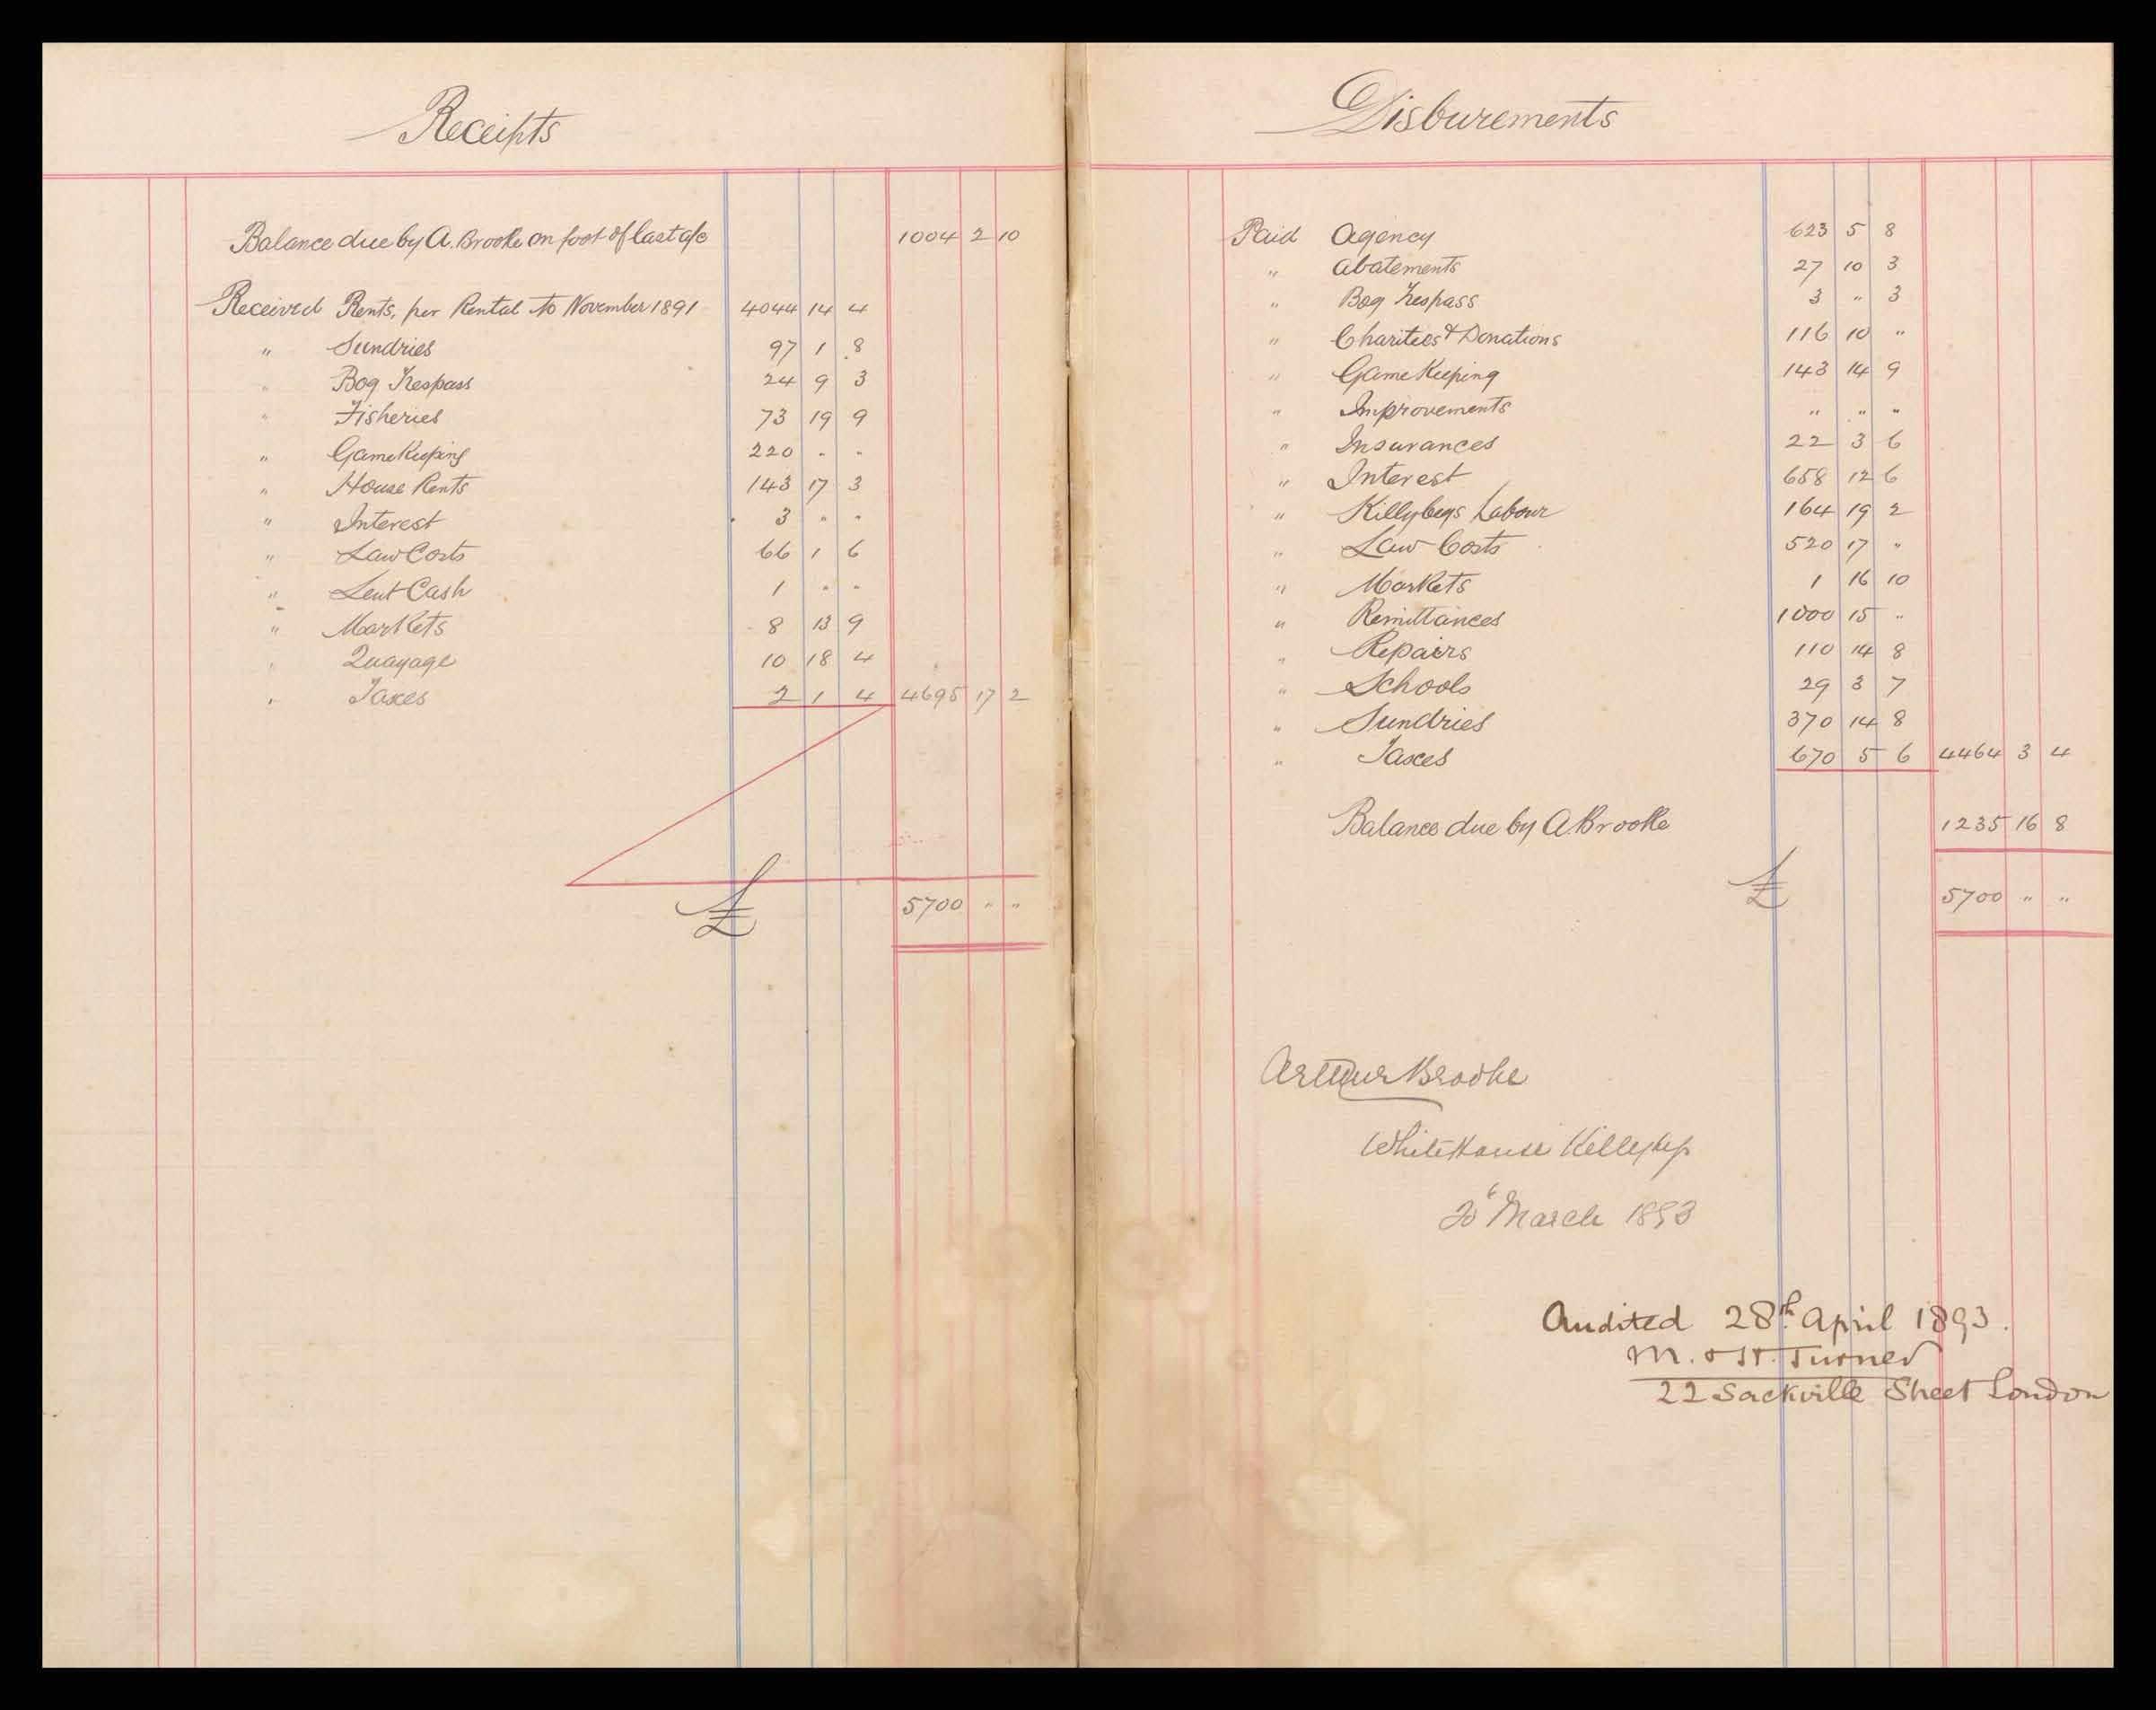 Receipts
Balance due by A. Brooke on foot of last a/c 1004 2 10
Received Rents, per Rental to November 1891 4044 14 4
" Sundries 97 1 8
" Bog Trespass 24 9 3
" Fisheries 73 19 9
" GameKeeping 220 " "
" House Rents 143 17 3
" Interest 3 " "
" Law Costs 66 1 6
" Lent Cash 1 " "
" Markets 8 13 9
" Quayage 10 18 4
" Taxes 2 1 4 4695 17 2
£ 5700 " "
Disburements
Paid Agency 623 5 8
" Abatements 27 10 3
" Bog Trespass 3 " 3
" Charities & Donations 116 10 "
" GameKeeping 143 14 9
" Improvements " " "
" Insurances 22 3 6
" Interest 658 12 6
" Killybegs Labour 164 19 2
" Law Costs 520 17 "
" Markets 1 16 10
" Remittances 1000 15 "
" Repairs 110 14 8
" Schools 29 3 7
" Sundries 370 14 8
" Taxes 670 5 6 4464 3 4
Balance due by A. Brooke 1235 16 8
£ 5700 " "
Arthur Brooke
White House Killybegs
March 1893
Audited 28th April 1893.
M. & H. Turner
22 Sackville Street London